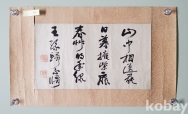 山中相送罷
日暮掩柴扉
春草明年綠
王孫歸不歸
kobay